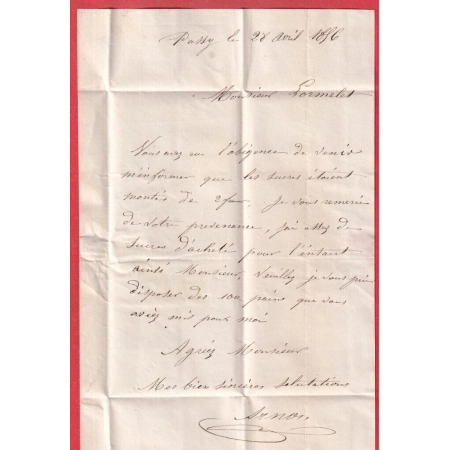 Passy le 28 Avril 1856
Monsieur Lormelet
Vous avez eu l'obligence de venir
m'informer que les sucres étaient
montés de 2 fr. je vous remercie
de votre prevenance, j'ai assez de
sucres d'acheté pour l'instant
ainsi Monsieur, Veuillez je vous prie
disposer des 100 pains que vous
aviez mis pour moi
Agréez Monsieur
Mes bien sincères salutations